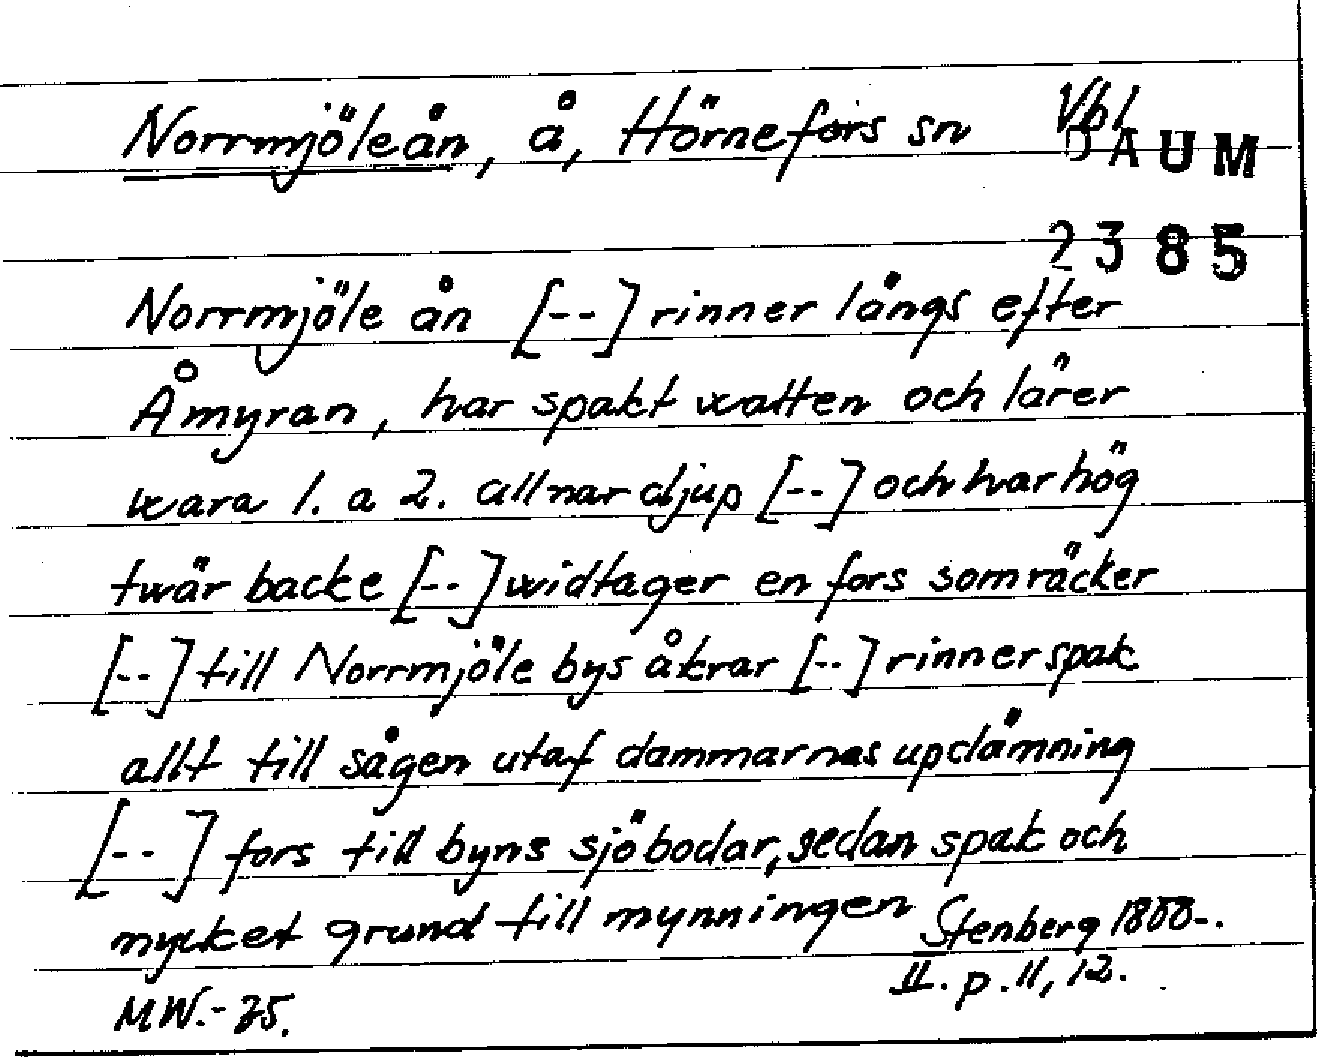 Norrmjöleån, å, Hörnefors sn Vbl
DAUM
2385
Norrmjöle ån [--] rinner långs efter
Åmyran, har spakt watten och lärer
wara 1. a 2. allnar djup [--] och har hög
twär backe [--] widtager en fors som räcker
[--] till Norrmjöle bys åkrar [--] rinner spak
allt till sågen utaf dammarnas updämning
[--] fors till byns sjöbodar, sedan spak och
mycket grund till mynningen Stenberg 1800-.
II. p. 11, 12.
MW.-75.